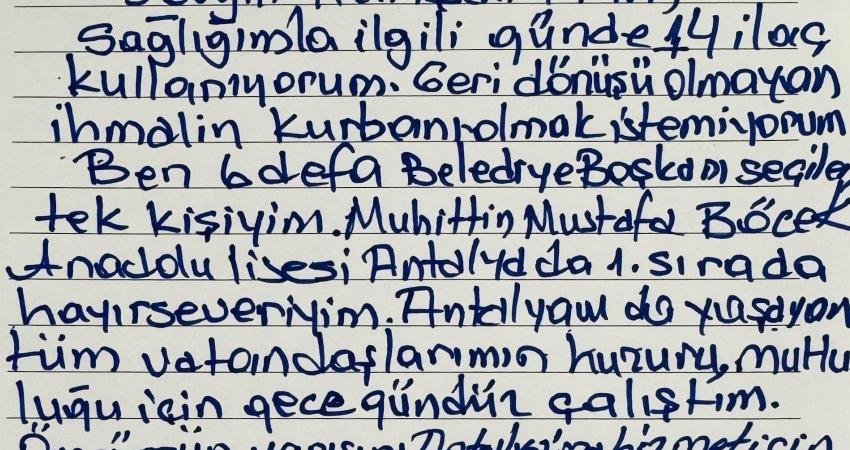 Sağlığımla ilgili günde 14 ilaç
kullanıyorum. Geri dönüşü olmayan
ihmalin kurbanı olmak istemiyorum
Ben 6 defa Belediye Başkanı seçilen
tek kişiyim. Muhittin Mustafa Böcek
Anadolu lisesi Antalyada 1. sırada
hayırseveriyim. Antalyam da yaşayan
tüm vatandaşlarımın huzuru, mutlu
luğu için gece gündüz çalıştım.
Ömrümün yarısını hizmet için